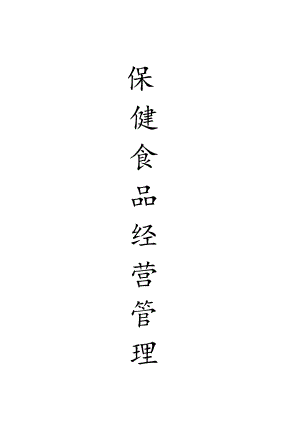 保健食品经营管理